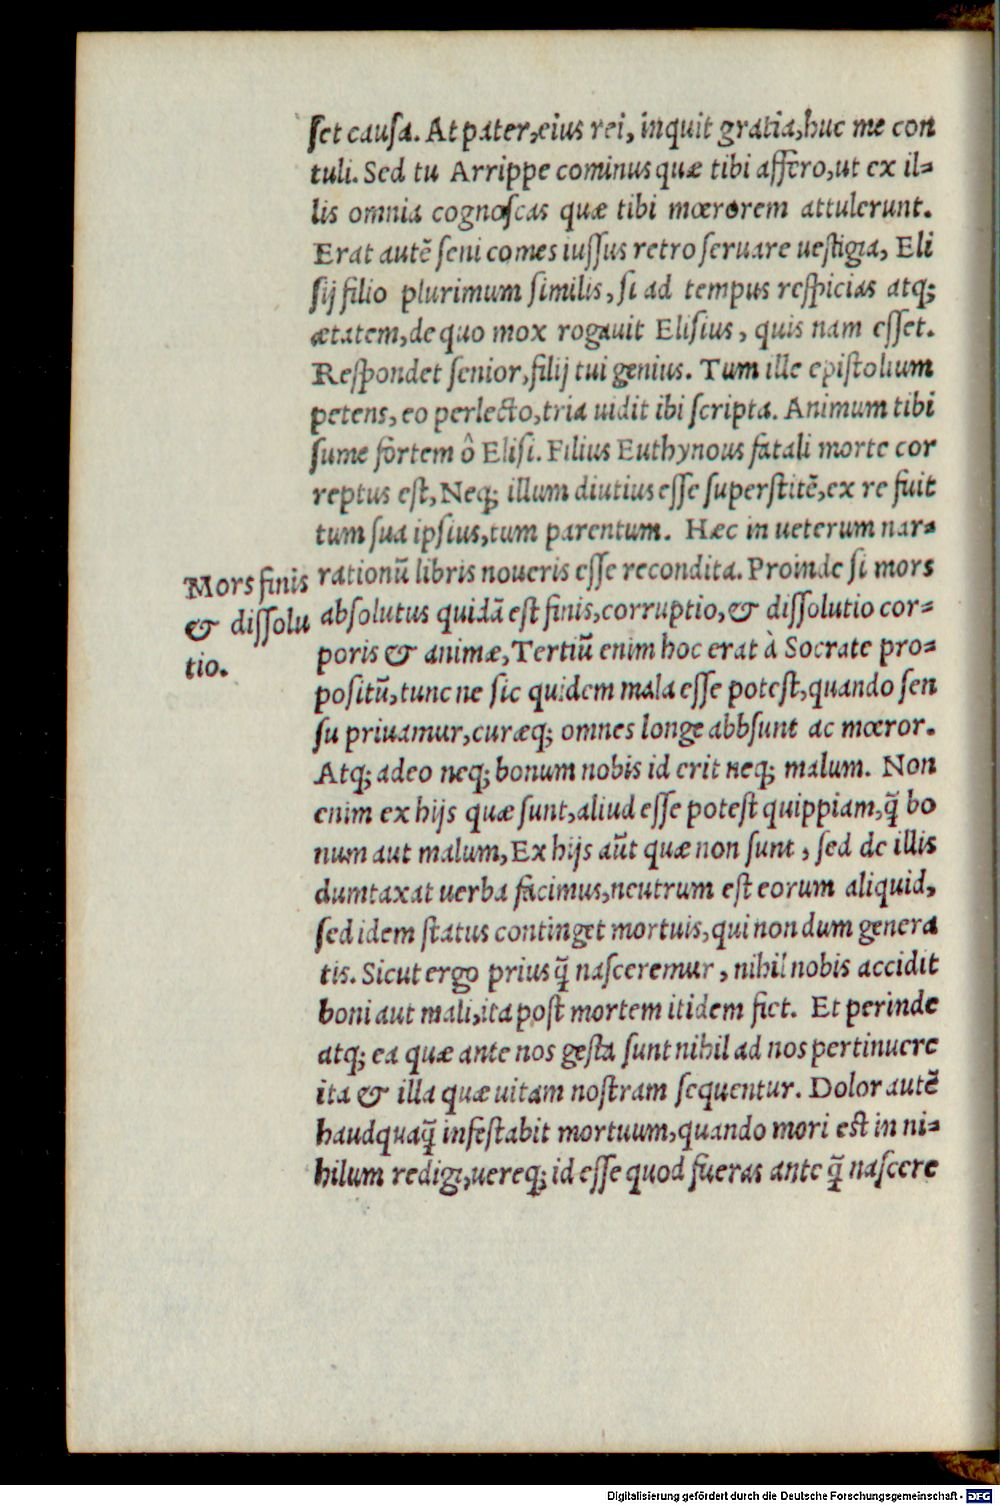 ſet cauſa. At pater, eius rei, inquit gratia, huc me con
tuli. Sed tu Arrippe cominus quæ tibi affero, ut ex il⸗
lis omnia cognoſcas quæ tibi mœrorem attulerunt.
Erat autẽ ſeni comes iuſſus retro ſeruare ueſtigia, Eli
ſij filio plurimum ſimilis, ſi ad tempus reſpicias atq;
ætatem, de quo mox rogauit Eliſius, quis nam eſſet.
Reſpondet ſenior, filij tui genius. Tum ille epiſtolium
petens, eo perlecto, tria uidit ibi ſcripta. Animum tibi
ſume fortem ô Eliſi. Filius Euthynous fatali morte cor
reptus eſt, Neq; illum diutius eſſe ſuperſtitẽ, ex re fuit
tum ſua ipſius, tum parentum. Hæc in ueterum nar⸗
rationũ libris noueris eſſe recondita. Proinde ſi mors
Mors finis
& diſſolu
tio.
abſolutus quidã eſt finis, corruptio, & diſſolutio cor⸗
poris & animæ, Tertiũ enim hoc erat à Socrate pro⸗
poſitũ, tunc ne ſic quidem mala eſſe poteſt, quando ſen
ſu priuamur, curæq; omnes longe abbſunt ac mœror.
Atq; adeo neq; bonum nobis id erit neq; malum. Non
enim ex hijs quæ ſunt, aliud eſſe poteſt quippiam, q̃ bo
num aut malum, Ex hijs aũt quæ non ſunt, ſed de illis
dumtaxat uerba facimus, neutrum eſt eorum aliquid,
ſed idem ſtatus continget mortuis, qui non dum genera
tis. Sicut ergo prius q̃ naſceremur, nihil nobis accidit
boni aut mali, ita poſt mortem itidem fiet. Et perinde
atq; ea quæ ante nos geſta ſunt nihil ad nos pertinuere
ita & illa quæ uitam noſtram ſequentur. Dolor autẽ
haudquaq̃ infeſtabit mortuum, quando mori eſt in ni⸗
hilum redigi, uereq; id eſſe quod fueras ante q̃ naſcere
Digitalisierung gefördert durch die Deutsche Forschungsgemeinschaft - DFG